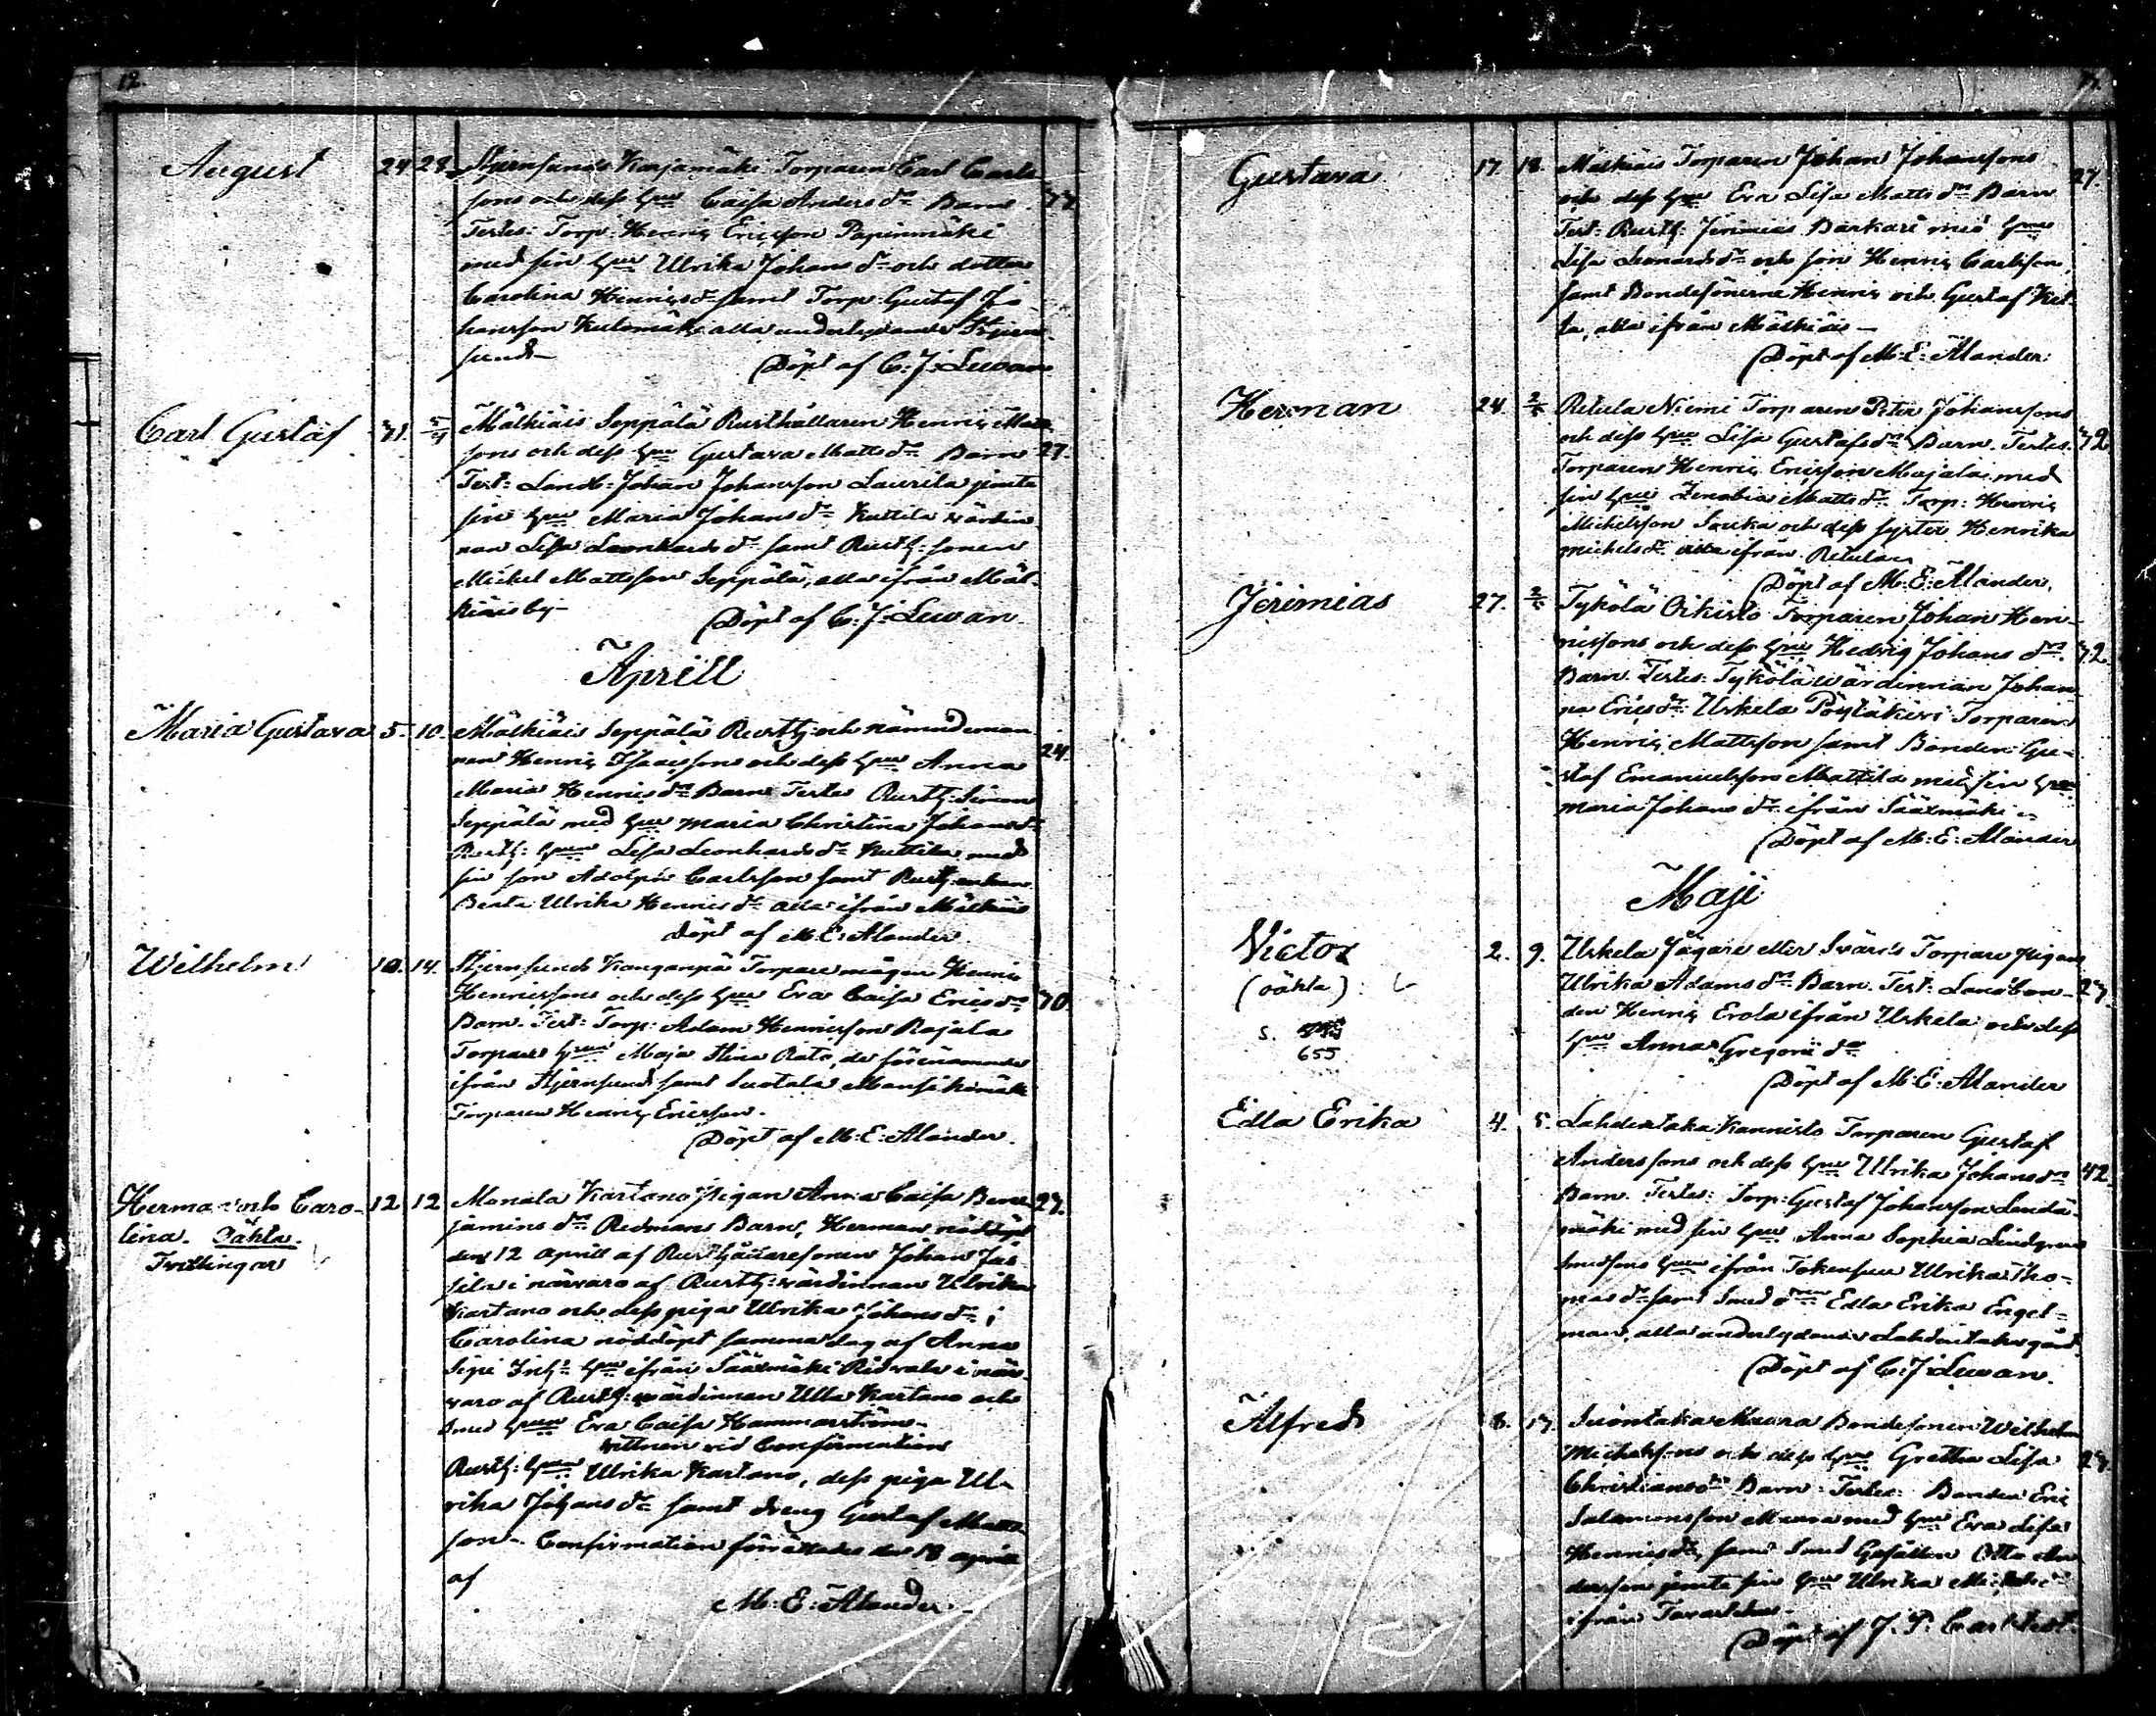 12.
August 24 28 Stjernsunds Karjamäki Torparen Carl Carls-
sons och dess hu Caisa Anders dr Barn
Testes: Torp: Henric Ericsson Papinmäki
med sin hu Ulrika Johans dr och dotter
Carolina Henrics dr samt Torp: Gustaf Jo-
hansson Kulomäki alla underlydande Stjern-
sund
Döpt af C: J: Lewan
Carl Gustaf 31. 5/4 Mälkiäis Seppälä Rusthållaren Henric Matts-
sons och dess hu Gustava Matts dr Barn 27.
Test: Landb: Johan Johansson Laurila jemte
sin hu Maria Johans dr Kuttila värdin-
nan Lisa Leonhards dr samt Rusth: sonen
Mickel Mattsson Seppälä, alla ifrån Mäl-
kiäis by
Döpt af C: J: Lewan.
Aprill
Maria Gustava 5. 10. Mälkiäis Seppälä Rusth: och nämndeman-
nen Henric Isacssons och dess hu Anna 24.
Maria Henrics dr Barn Testes Rusth: Simon
Seppälä med hu Maria Christina Johans dr
Rusth: hu Lisa Leonhards dr Kuttila med
sin son Adolph Carlsson samt Rusth enkan
Beata Ulrika Henrics dr alla ifrån Mälkiäis
Döpt af M: E: Alander.
Wilhelm 10. 14. Stjernsunds Kanganpä Torpare mågen Henric
Henricssons och dess hu Eva Caisa Erics dr 30.
Barn. Test: Torp: Adam Henricsson Rajala
Torpare hu Maja Stina Rato, de förenämnde
ifrån Stjernsund samt Suotala Mansikimäki
Torparen Henric Ericsson.
Döpt af M: E: Alander.
Herman och Caro- 12 12 Monala Kartano Pigan Anna Caisa Ben- 27.
lina. Oäkta. jamins dr Redmans Barn, Herman nöddöpt
Tvillingar den 12 aprill af Rusthållaresonen Johan Jus-
sila i närvaro af Rusth: värdinnan Ulrika
Kartano och dess piga Ulrika Johans dr;
Carolina nöddöpt samma dag af Anna
Sipi Inh: hu ifrån Sääxmäki Ridvala i när-
varo af Rusth: värdinnan Ulla Kartano och
smed hu Eva Caisa Hammarström
vittnen vid Confirmation
Rusth: hu Ulrika Kartano, dess piga Ul-
rika Johans dr samt dreng Gustaf Matts-
son. Confirmation förrättades den 18 aprill
af
M: E: Alander
Gustava 17. 18. Mälkiäis Torparen Johan Johanssons
och dess hu Eva Lisa Matts dr Barn 27.
Test: Rusth: Jerimias Barkari med hu
Lisa Leonards dr och son Henric Carlsson,
samt Bondesönerne Henric och Gustaf
alla ifrån Mälkiäis
Döpt af M: E: Alander.
Herman 24. 2/5 Retula Niemi Torparen Peter Johanssons
och dess hu Lisa Gustafs dr Barn. Testes. 32
Torparen Henric Ericsson Majala med
sin hu Zenobia Matts dr Torp: Henric
Michelsson och dess syster Henrika
Michels dr alla ifrån Retula
Döpt af M: E: Alander.
Jerimias 27. 2/5 Tykölä Oikisto Torparen Johan Hen-
ricssons och dess hu Hedvig Johans dr 32.
Barn. Testes: Tykölä wärdinnan Johan-
na Erics dr Uskela Pöytäkivi Torparen
Henric Mattsson samt Bonden Gu-
staf Emanuelsson Mattila med sin hu
Maria Johans dr ifrån Sääxmäki
Döpt af M: E: Alander
Maji
Victor 2. 9. Uskela Jägare eller Svärds Torpare pigan
(oäkta) Ulrika Adams dr Barn. Test: Landbon- 27
s. den Henric Erola ifrån Uskela och dess
655 hu Anna Gregorii dr
Döpt af M: E: Alander
Edla Erika 4. 5. Lahdentaka Kannisto Torparen Gustaf
Anderssons och dess hu Ulrika Johans dr 42
Barn. Testes: Torp: Gustaf Johansson Lendä-
mäki med sin hu Anna Sophia Lindgren
hu ifrån Tokensuu Ulrika Tho-
mas dr samt Smed Edla Erika Engel-
man, alla underlydande Lahdentaka gård
Döpt af C: J: Lewan.
Alfred 8. 17 Suontaka Maura Bondesonen Wilhelm
Michelssons och dess hu Gretha Lisa 27.
Christians dr Barn. Testes: Bonden Eric
Salomonsson Maura med hu Eva Lisa
Henrics dr, samt Smed Gesällen Otto An-
dersson jemte sin hu Ulrika
ifrån Tavastehus
Döpt af J. P. Carlstedt.